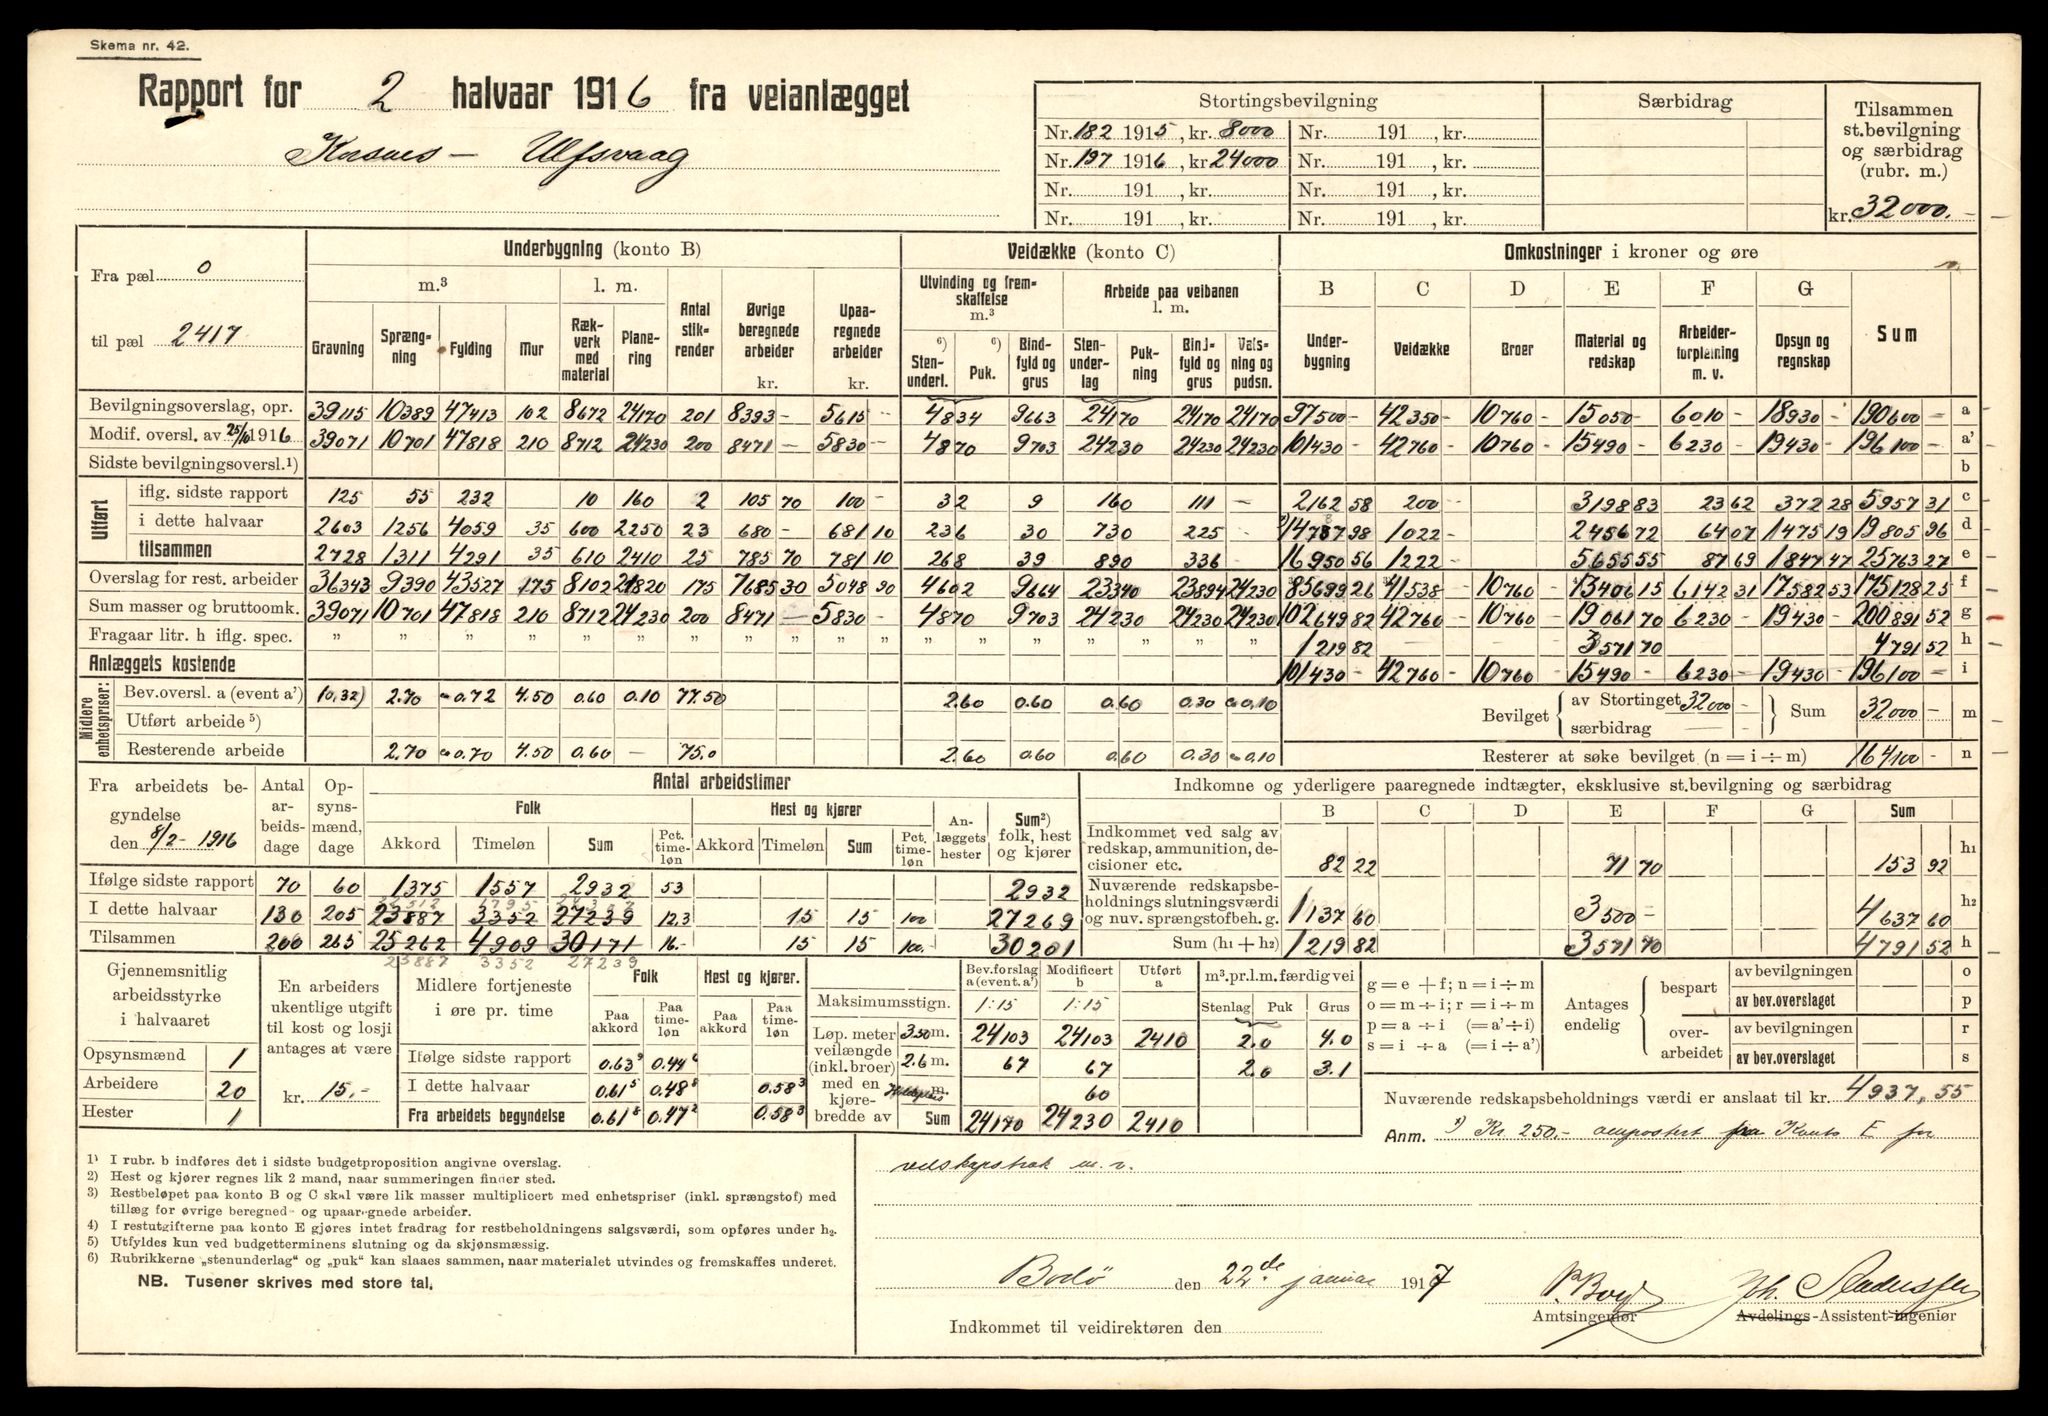 Skema nr. 42.
Rapport for 2 halvaar 1916 fra veianlægget
Korsnes – Ulfsvaag
Stortingsbevilgning | Særbidrag | Tilsammen st.bevilgning og særbidrag (rubr. m.)
Nr. 182 1915, kr. 8000 | Nr. 191 , kr.
Nr. 197 1916, kr. 24000 | Nr. 191 , kr.
Nr. 191 , kr. | Nr. 191 , kr.
Nr. 191 , kr. | Nr. 191 , kr. | kr. 32000.-
Fra pæl 0
til pæl 2417
Underbygning (konto B) | Veidække (konto C) | Omkostninger i kroner og øre
m.³ | l. m. | Antal stikrender | Øvrige beregnede arbeider kr. | Upaaregnede arbeider kr. | Utvinding og fremskaffelse m.³ | Arbeide paa veibanen l. m. | B | C | D | E | F | G
Gravning | Sprængning | Fylding | Mur | Rækverk med material | Planering | ⁶) Stenunderl. | ⁶) Puk. | Bindfyld og grus | Stenunderlag | Pukning | Bindfyld og grus | Valsning og pudsn. | Underbygning | Veidække | Broer | Material og redskap | Arbeiderforpleining m. v. | Opsyn og regnskap | Sum
Bevilgningsoverslag, opr. | 39115 | 10389 | 47413 | 102 | 8672 | 24170 | 201 | 8393 - | 5615 - | 4834 | 9663 | 24170 | 24170 | 24170 | 97500 - | 42350 - | 10760 - | 15050 - | 6010 - | 18930 - | 190600 - | a
Modif. oversl. av 25/10 1916 | 39071 | 10701 | 47818 | 210 | 8712 | 24230 | 200 | 8471 - | 5830 - | 4870 | 9703 | 24230 | 24230 | 24230 | 101430 - | 42760 - | 10760 - | 15490 - | 6230 - | 19430 - | 196100 - | a'
Sidste bevilgningsoversl.¹) | b
Utført
iflg. sidste rapport | 125 | 55 | 232 | 10 | 160 | 2 | 105 70 | 100 - | 32 | 9 | 160 | 111 | - | 2162 58 | 200 - | 3198 83 | 23 62 | 372 28 | 5957 31 | c
i dette halvaar | 2603 | 1256 | 4059 | 35 | 600 | 2250 | 23 | 680 - | 681 10 | 236 | 30 | 730 | 225 | - | 14787 98 | 1022 - | 2456 72 | 64 07 | 1475 19 | 19805 96 | d
tilsammen | 2728 | 1311 | 4291 | 35 | 610 | 2410 | 25 | 785 70 | 781 10 | 268 | 39 | 890 | 336 | - | 16950 56 | 1222 - | 5655 55 | 87 69 | 1847 47 | 25763 27 | e
Overslag for rest. arbeider | 36343 | 9390 | 43527 | 175 | 8102 | 21820 | 175 | 7685 30 | 5048 90 | 4602 | 9664 | 23340 | 23894 | 24230 | 85699 26 | 41538 - | 10760 - | 13406 15 | 6142 31 | 17582 53 | 175128 25 | f
Sum masser og bruttoomk. | 39071 | 10701 | 47818 | 210 | 8712 | 24230 | 200 | 8471 - | 5830 - | 4870 | 9703 | 24230 | 24230 | 24230 | 102649 82 | 42760 - | 10760 - | 19061 70 | 6230 - | 19430 - | 200891 52 | g
Fragaar litr. h iflg. spec. | " | " | " | " | " | " | " | " | " | " | " | " | " | " | " | 1219 82 | 3571 70 | 4791 52 | h
Anlæggets kostende | 101430 - | 42760 - | 10760 - | 15490 - | 6230 - | 19430 - | 196100 - | i
Midlere enhetspriser:
Bev.oversl. a (event a') | (0,32) | 2.70 | ∞ 0.72 | 4.50 | 0.60 | 0.10 | 77.50 | 2.60 | 0.60 | 0.60 | 0.30 | ∞ 0.10 | Bevilget { av Stortinget 32000 - } Sum 32000 - | m
Utført arbeide ⁵) | særbidrag —
Resterende arbeide | 2.70 | ∞ 0.70 | 4.50 | 0.60 | - | 75.0 | 2.60 | 0.60 | 0.60 | 0.30 | ∞ 0.10 | Resterer at søke bevilget (n = i ÷ m) 164100 - | n
Fra arbeidets begyndelse den 8/2 - 1916 | Antal arbeidsdage | Opsynsmænd, dage | Antal arbeidstimer
Folk | Hest og kjører | Anlæggets hester | Sum²) folk, hest og kjører
Akkord | Timeløn | Sum | Pct. timeløn | Akkord | Timeløn | Sum | Pct. timeløn
Ifølge sidste rapport | 70 | 60 | 1375 | 1557 | 2932 | 53 | 2932
22512 1795 24307
I dette halvaar | 130 | 205 | 23887 | 3352 | 27239 | 12.3 | 15 | 15 | 100 | 27269
Tilsammen | 200 | 265 | 25262 | 4909 | 30171 | 16.- | 15 | 15 | 100. | 30201
23887 3352 27239
Indkomne og yderligere paaregnede indtægter, eksklusive st.bevilgning og særbidrag
B | C | D | E | F | G | Sum
Indkommet ved salg av redskap, ammunition, decisioner etc. | 82 22 | 71 70 | 153 92 | h₁
Nuværende redskapsbeholdnings slutningsværdi og nuv. sprængstofbeh. g. | 1137 60 | 3500 - | 4637 60 | h₂
Sum (h₁ + h₂) | 1219 82 | 3571 70 | 4791 52 | h
Gjennemsnitlig arbeidsstyrke i halvaaret
Opsynsmænd 1
Arbeidere 20
Hester 1
En arbeiders ukentlige utgift til kost og losji antages at være
kr. 15.-
Midlere fortjeneste i øre pr. time | Folk | Hest og kjører.
Paa akkord | Paa timeløn | Paa akkord | Paa timeløn
Ifølge sidste rapport | 0.63⁹ | 0.44⁶
I dette halvaar | 0.61⁵ | 0.48⁸ | 0.58³
Fra arbeidets begyndelse | 0.61⁸ | 0.47² | 0.58³
Bev.forslag a (event. a') | Modificert b | Utført a | m³.pr.l.m.færdig vei
Maksimumsstign. | 1:15 | 1:15 | Stenlag | Puk | Grus
Løp. meter veilængde (inkl. broer) med en kjørebredde av
3.50 m. | 24103 | 24103 | 2410 | 2.0 | 4.0
2.6 m. | 67 | 67 | 2.0 | 3.1
m. | 60
Sum | 24170 | 24230 | 2410
g = e + f; n = i ÷ m
o = m ÷ i; r = i ÷ m
p = a ÷ i (= a' ÷ i)
s = i ÷ a (= i ÷ a')
Antages endelig { bespart | av bevilgningen | o
av bev.overslaget | p
overarbeidet | av bevilgningen | r
av bev.overslaget | s
Nuværende redskapsbeholdnings værdi er anslaat til kr. 4937,55
Anm. ¹) Kr. 250.- ompostert fra Konto E for
redskapstræk m. v.
1) I rubr. b indføres det i sidste budgetproposition angivne overslag.
2) Hest og kjører regnes lik 2 mand, naar summeringen finder sted.
3) Restbeløpet paa konto B og C skal være lik masser multiplicert med enhetspriser (inkl. sprængstof) med tillæg for øvrige beregned- og upaaregnede arbeider.
4) I restutgifterne paa konto E gjøres intet fradrag for restbeholdningens salgsværdi, som opføres under h₂.
5) Utfyldes kun ved budgetterminens slutning og da skjønsmæssig.
6) Rubrikkerne „stenunderlag“ og „puk“ kan slaaes sammen, naar materialet utvindes og fremskaffes underet.
NB. Tusener skrives med store tal.
Bodö den 22de januar 1917
Amtsingeniør
Avdelings-Assistent-ingeniør
Indkommet til veidirektøren den